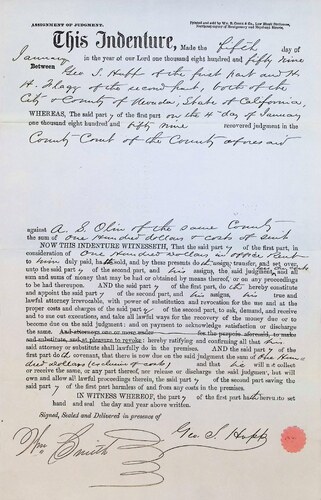 ASSIGNMENT OF JUDGMENT.
This Indenture, Made the fifth day of
January in the year of our Lord one thousand eight hundred and fifty nine
Between Geo S. Hupp of the first part and H
H. Flagg of the second part, both of the
City & County of Nevada, State of California,
WHEREAS, The said party of the first part on the 4 day of January
one thousand eight hundred and fifty nine recovered judgment in the
County Court of the County aforesaid
against A. S. Olin of the same County
the sum of One Hundred dollars & costs of suit
NOW THIS INDENTURE WITNESSETH, That the said party of the first part, in
consideration of One Hundred dollars in office Rent
to him duly paid, hath sold, and by these presents doth assign, transfer, and set over,
unto the said party of the second part, and his assigns, the said judgment, and all
sum and sums of money that may be had or obtained by means thereof, or on any proceedings
to be had thereupon. AND the said party of the first part, doth hereby constitute
and appoint the said party of the second part, and his assigns, his true and
lawful attorney irrevocable, with power of substitution and revocation for the use and at the
proper costs and charges of the said party of the second part, to ask, demand, and receive
and to sue out executions, and take all lawful ways for the recovery of the money due or to
become due on the said judgment: and on payment to acknowledge satisfaction or discharge
the same. And attorneys one or more under for the purpose aforesaid, to make
and substitute, and at pleasure to revoke: hereby ratifying and confirming all that his
said attorney or substitute shall lawfully do in the premises. AND the said party of the
first part doth covenant, that there is now due on the said judgment the sum of One Hun-
dred dollars and that he will not collect
or receive the same, or any part thereof, nor release or discharge the said judgment, but will
own and allow all lawful proceedings therein, the said party of the second part saving the
said party of the first part harmless of and from any costs in the premises.
IN WITNESS WHEREOF, the party of the first part hath hereunto set
hand and seal the day and year above written.
Signed, Sealed and Delivered in presence of
Geo. S. Hupp
Wm. Smith